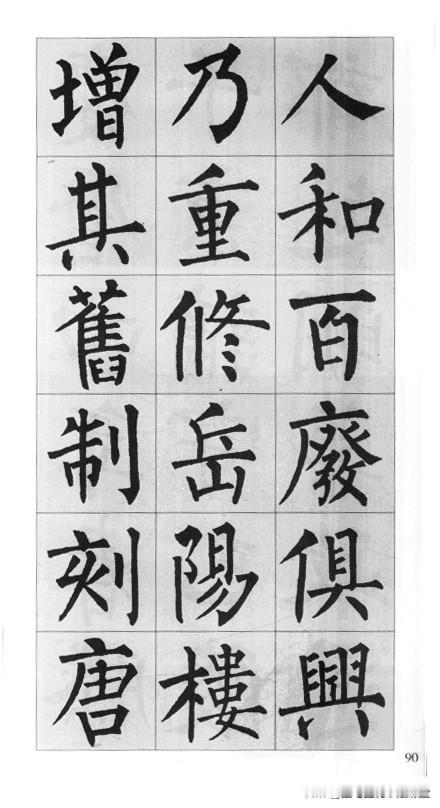 人和百廢俱興
乃重修岳陽樓
增其舊制刻唐
90